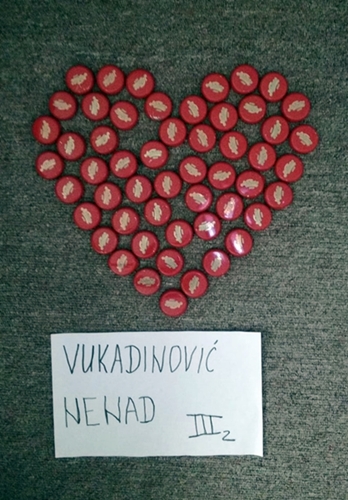 VUKADINOVIĆ
NENAD III₂